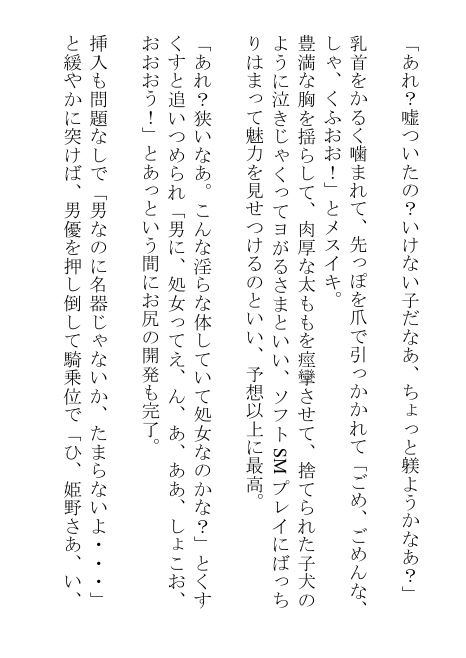 「あれ？嘘ついたの？いけない子だなあ、ちょっと躾ようかなあ？」
乳首をかるく噛まれて、先っぽを爪で引っかかれて「ごめ、ごめんな、
しゃ、くふおお！」とメスイキ。
豊満な胸を揺らして、肉厚な太ももを痙攣させて、捨てられた子犬の
ように泣きじゃくってヨがるさまといい、ソフトSMプレイにばっち
りはまって魅力を見せつけるのといい、予想以上に最高。
「あれ？狭いなあ。こんな淫らな体していて処女なのかな？」とくす
くすと追いつめられ「男に、処女ってえ、ん、あ、ああ、しょこお、
おおおう！」とあっという間にお尻の開発も完了。
挿入も問題なしで「男なのに名器じゃないか、たまらないよ・・・」
と緩やかに突けば、男優を押し倒して騎乗位で「ひ、姫野さあ、い、